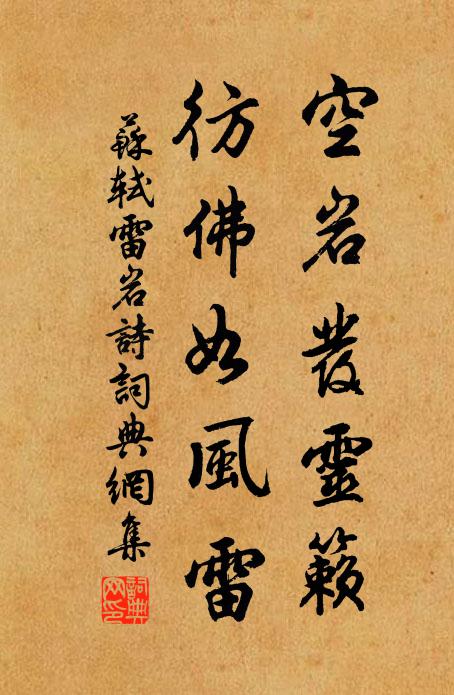 空岩發靈籟
彷佛如風雷
蘇軾雷岩詩詞典網集
詞典網印